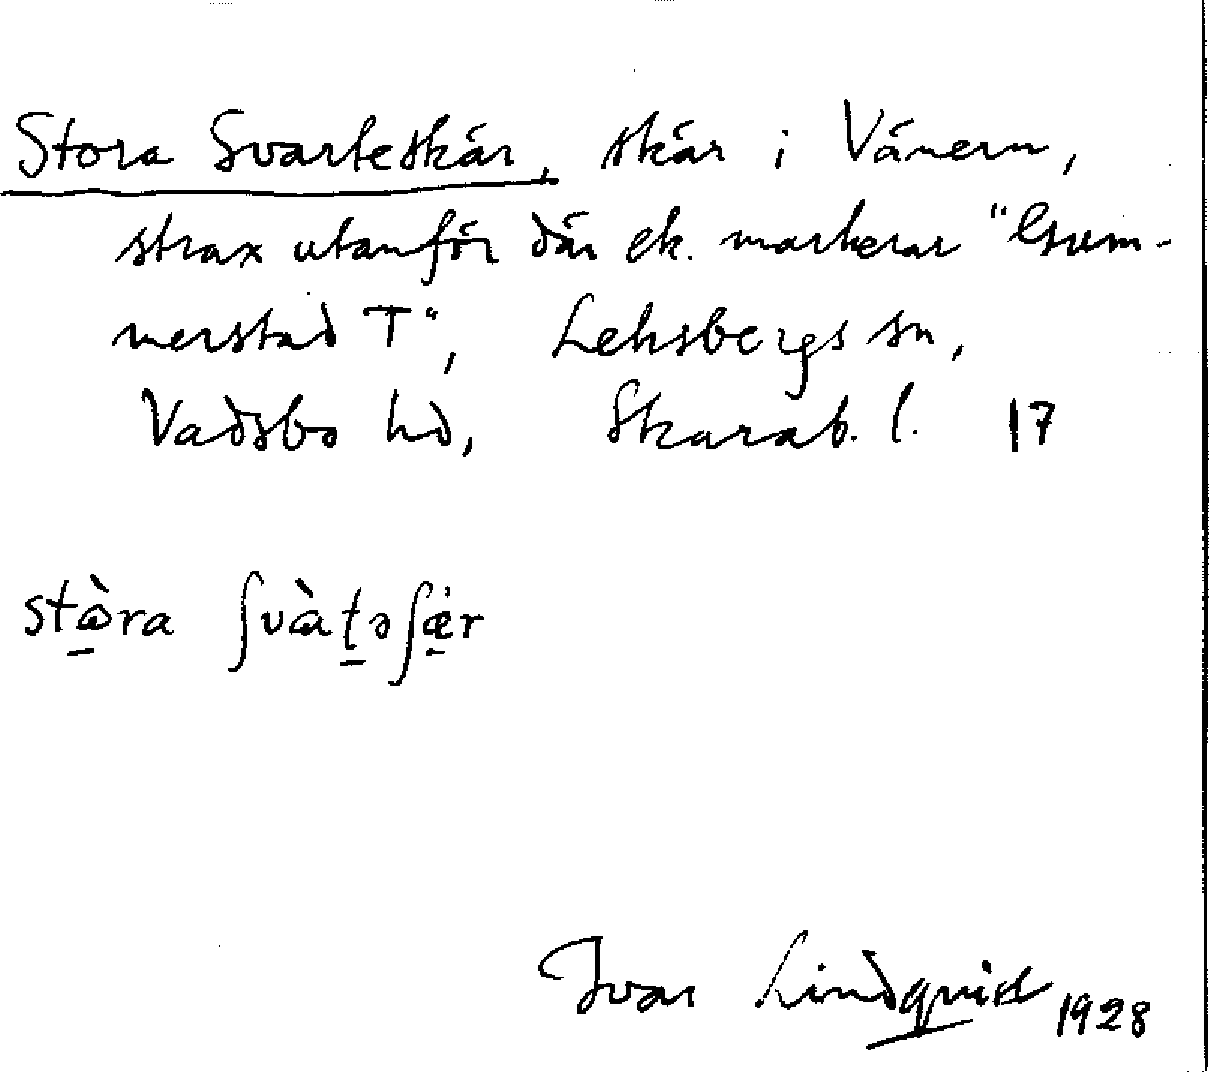 Stora Svarteskär, skär i Vänern,
strax utanför där ek. markerar "Gum-
merstad T", Leksbergs sn,
Vadsbo hd, Skarab. l. 17
stɷ̱̀ra ʃvὰt̠əʃæ̠r
Ivar Lindquist 1928